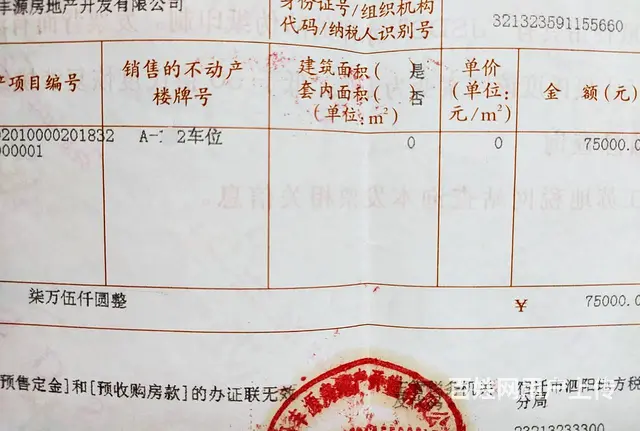 丰源房地产开发有限公司
身份证号/组织机构
代码/纳税人识别号
321323591155660
项目编号
销售的不动产
楼牌号
建筑面积( 是
套内面积( 否
(单位:m²)
单价
(单位:
元/m²)
金 额(元)
02010000201832
000001
A-1 2车位
0
0
75000.0
柒万伍仟圆整
¥
75000.0
预售定金]和[预收购房款]的办证联无效
丰源房地产开发有限公
泗阳地方税
分局
23213233300